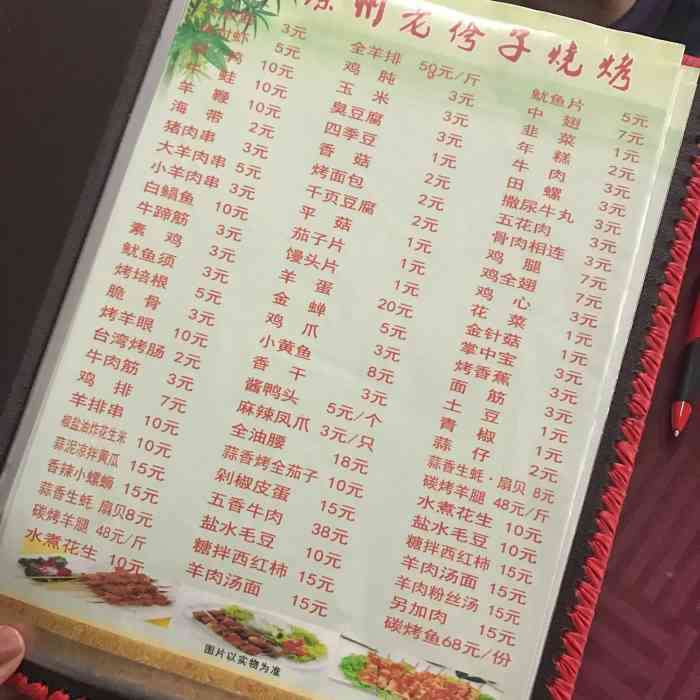 州老侉子烧烤
3元
虾 5元
鸭 10元
牛蛙 10元
羊鞭 10元
海带 2元
猪肉串 3元
大羊肉串 5元
小羊肉串 3元
白鲳鱼 10元
牛蹄筋 3元
素鸡 3元
鱿鱼须 3元
烤培根 5元
脆骨 3元
烤羊眼 10元
台湾烤肠 2元
牛肉筋 3元
鸡排 7元
羊排串 10元
椒盐油炸花生米 10元
蒜泥凉拌黄瓜 15元
香辣小螺蛳 15元
蒜香生蚝·扇贝8元
碳烤羊腿 48元/斤
水煮花生 10元
全羊排 元/斤
鸡肫 3元
玉米 3元
臭豆腐 3元
四季豆 1元
香菇 2元
烤面包 2元
干页豆腐 2元
平菇 1元
茄子片 1元
馒头片 1元
羊蛋 20元
金蝉 5元
鸡爪 3元
小黄鱼 8元
香干 3元
酱鸭头 5元/个
麻辣凤爪 3元/只
全油腰 18元
蒜香烤全茄子 10元
剁椒皮蛋 15元
五香牛肉 38元
盐水毛豆 10元
糖拌西红柿 15元
羊肉汤面 15元
鱿鱼片 5元
中翅 7元
韭菜 1元
年糕 2元
牛肉 3元
田螺 3元
撒尿牛丸 3元
五花肉 3元
骨肉相连 3元
鸡腿 7元
鸡全翅 7元
鸡心 3元
花菜 1元
金针菇 1元
掌中宝 3元
烤香蕉 3元
面筋 1元
土豆 1元
青椒 1元
蒜仔 2元
蒜香生蚝·扇贝 8元
碳烤羊腿 48元/斤
水煮花生 10元
盐水毛豆 10元
糖拌西红柿 15元
羊肉汤面 15元
羊肉粉丝汤 15元
另加肉 15元
碳烤鱼68元/份
图片以实物为准